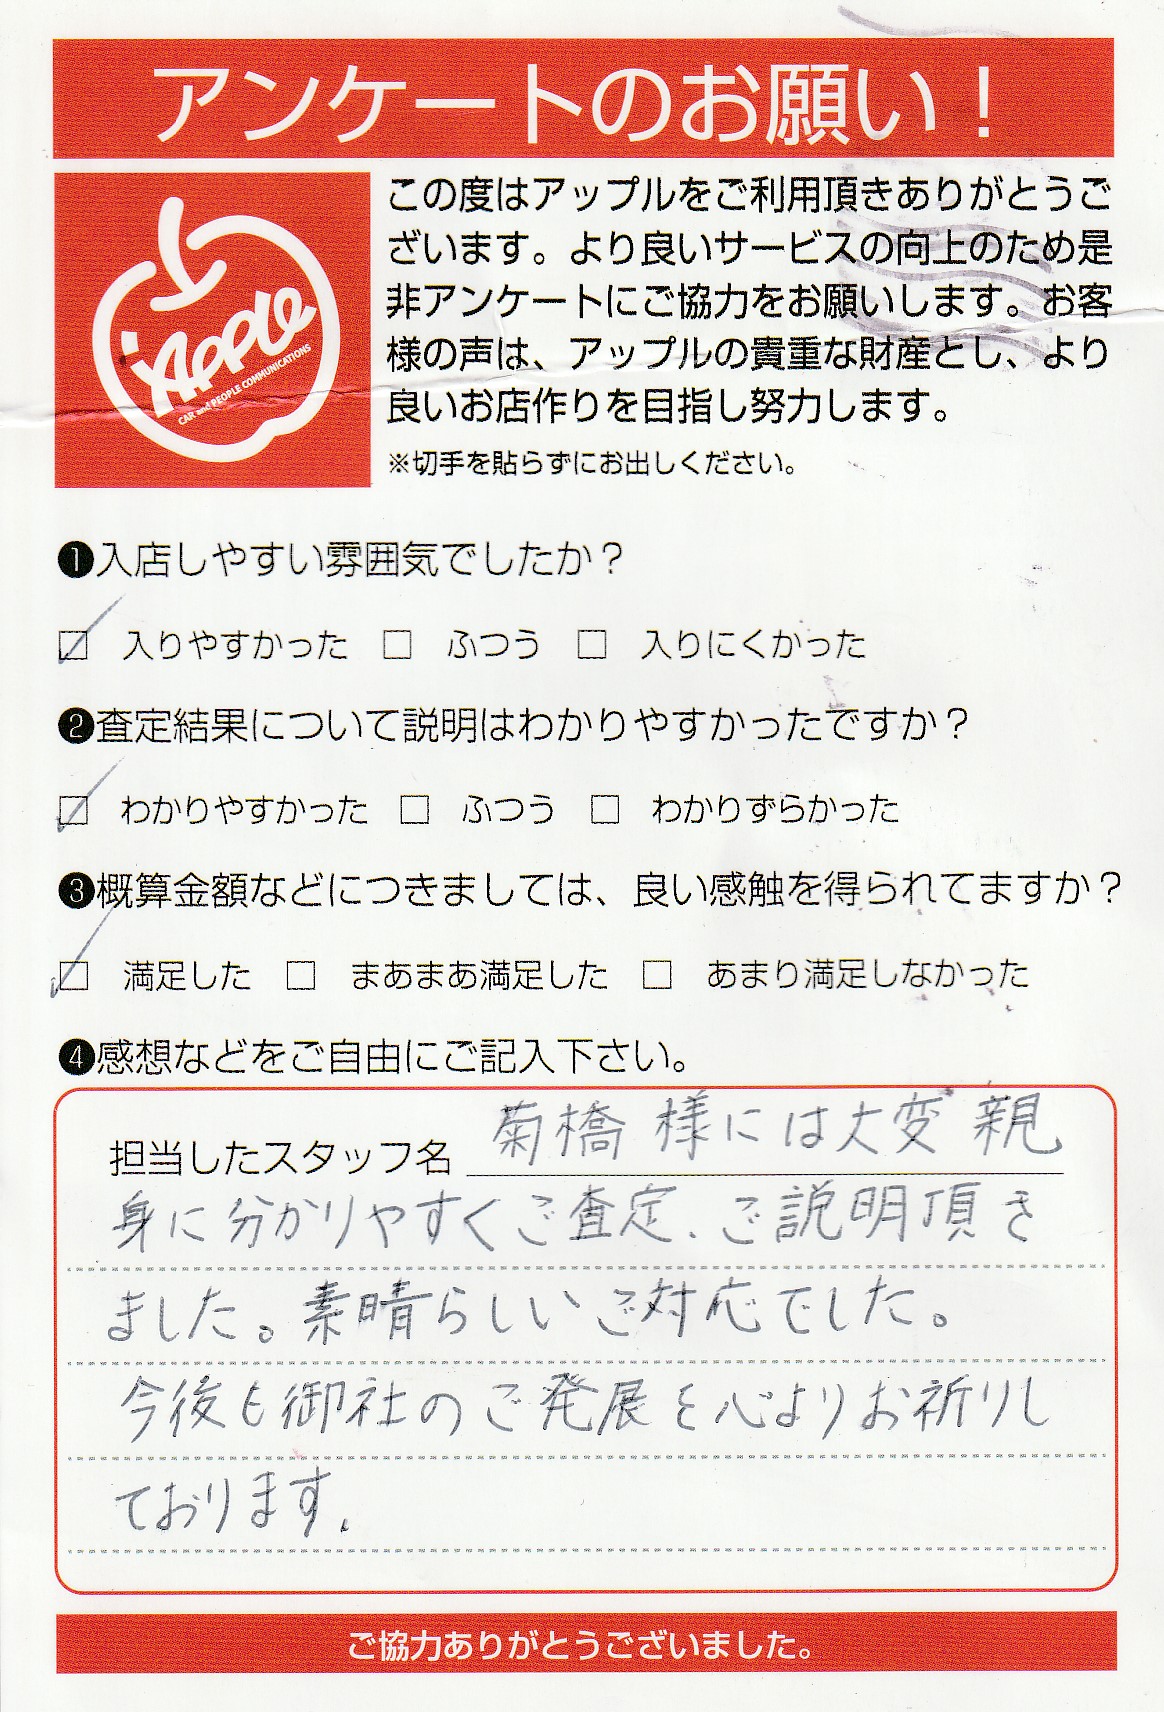 アンケートのお願い！
Apple
CAR and PEOPLE COMMUNICATIONS
この度はアップルをご利用頂きありがとうご
ざいます。より良いサービスの向上のため是
非アンケートにご協力をお願いします。お客
様の声は、アップルの貴重な財産とし、より
良いお店作りを目指し努力します。
※切手を貼らずにお出しください。
❶入店しやすい雰囲気でしたか？
☑ 入りやすかった □ ふつう □ 入りにくかった
❷査定結果について説明はわかりやすかったですか？
☑ わかりやすかった □ ふつう □ わかりずらかった
❸概算金額などにつきましては、良い感触を得られてますか？
☑ 満足した □ まあまあ満足した □ あまり満足しなかった
❹感想などをご自由にご記入下さい。
担当したスタッフ名 菊橋 様には大変 親
身に分かりやすくご査定、ご説明頂き
ました。素晴らしいご対応でした。
今後も御社のご発展を心よりお祈りし
ております。
ご協力ありがとうございました。